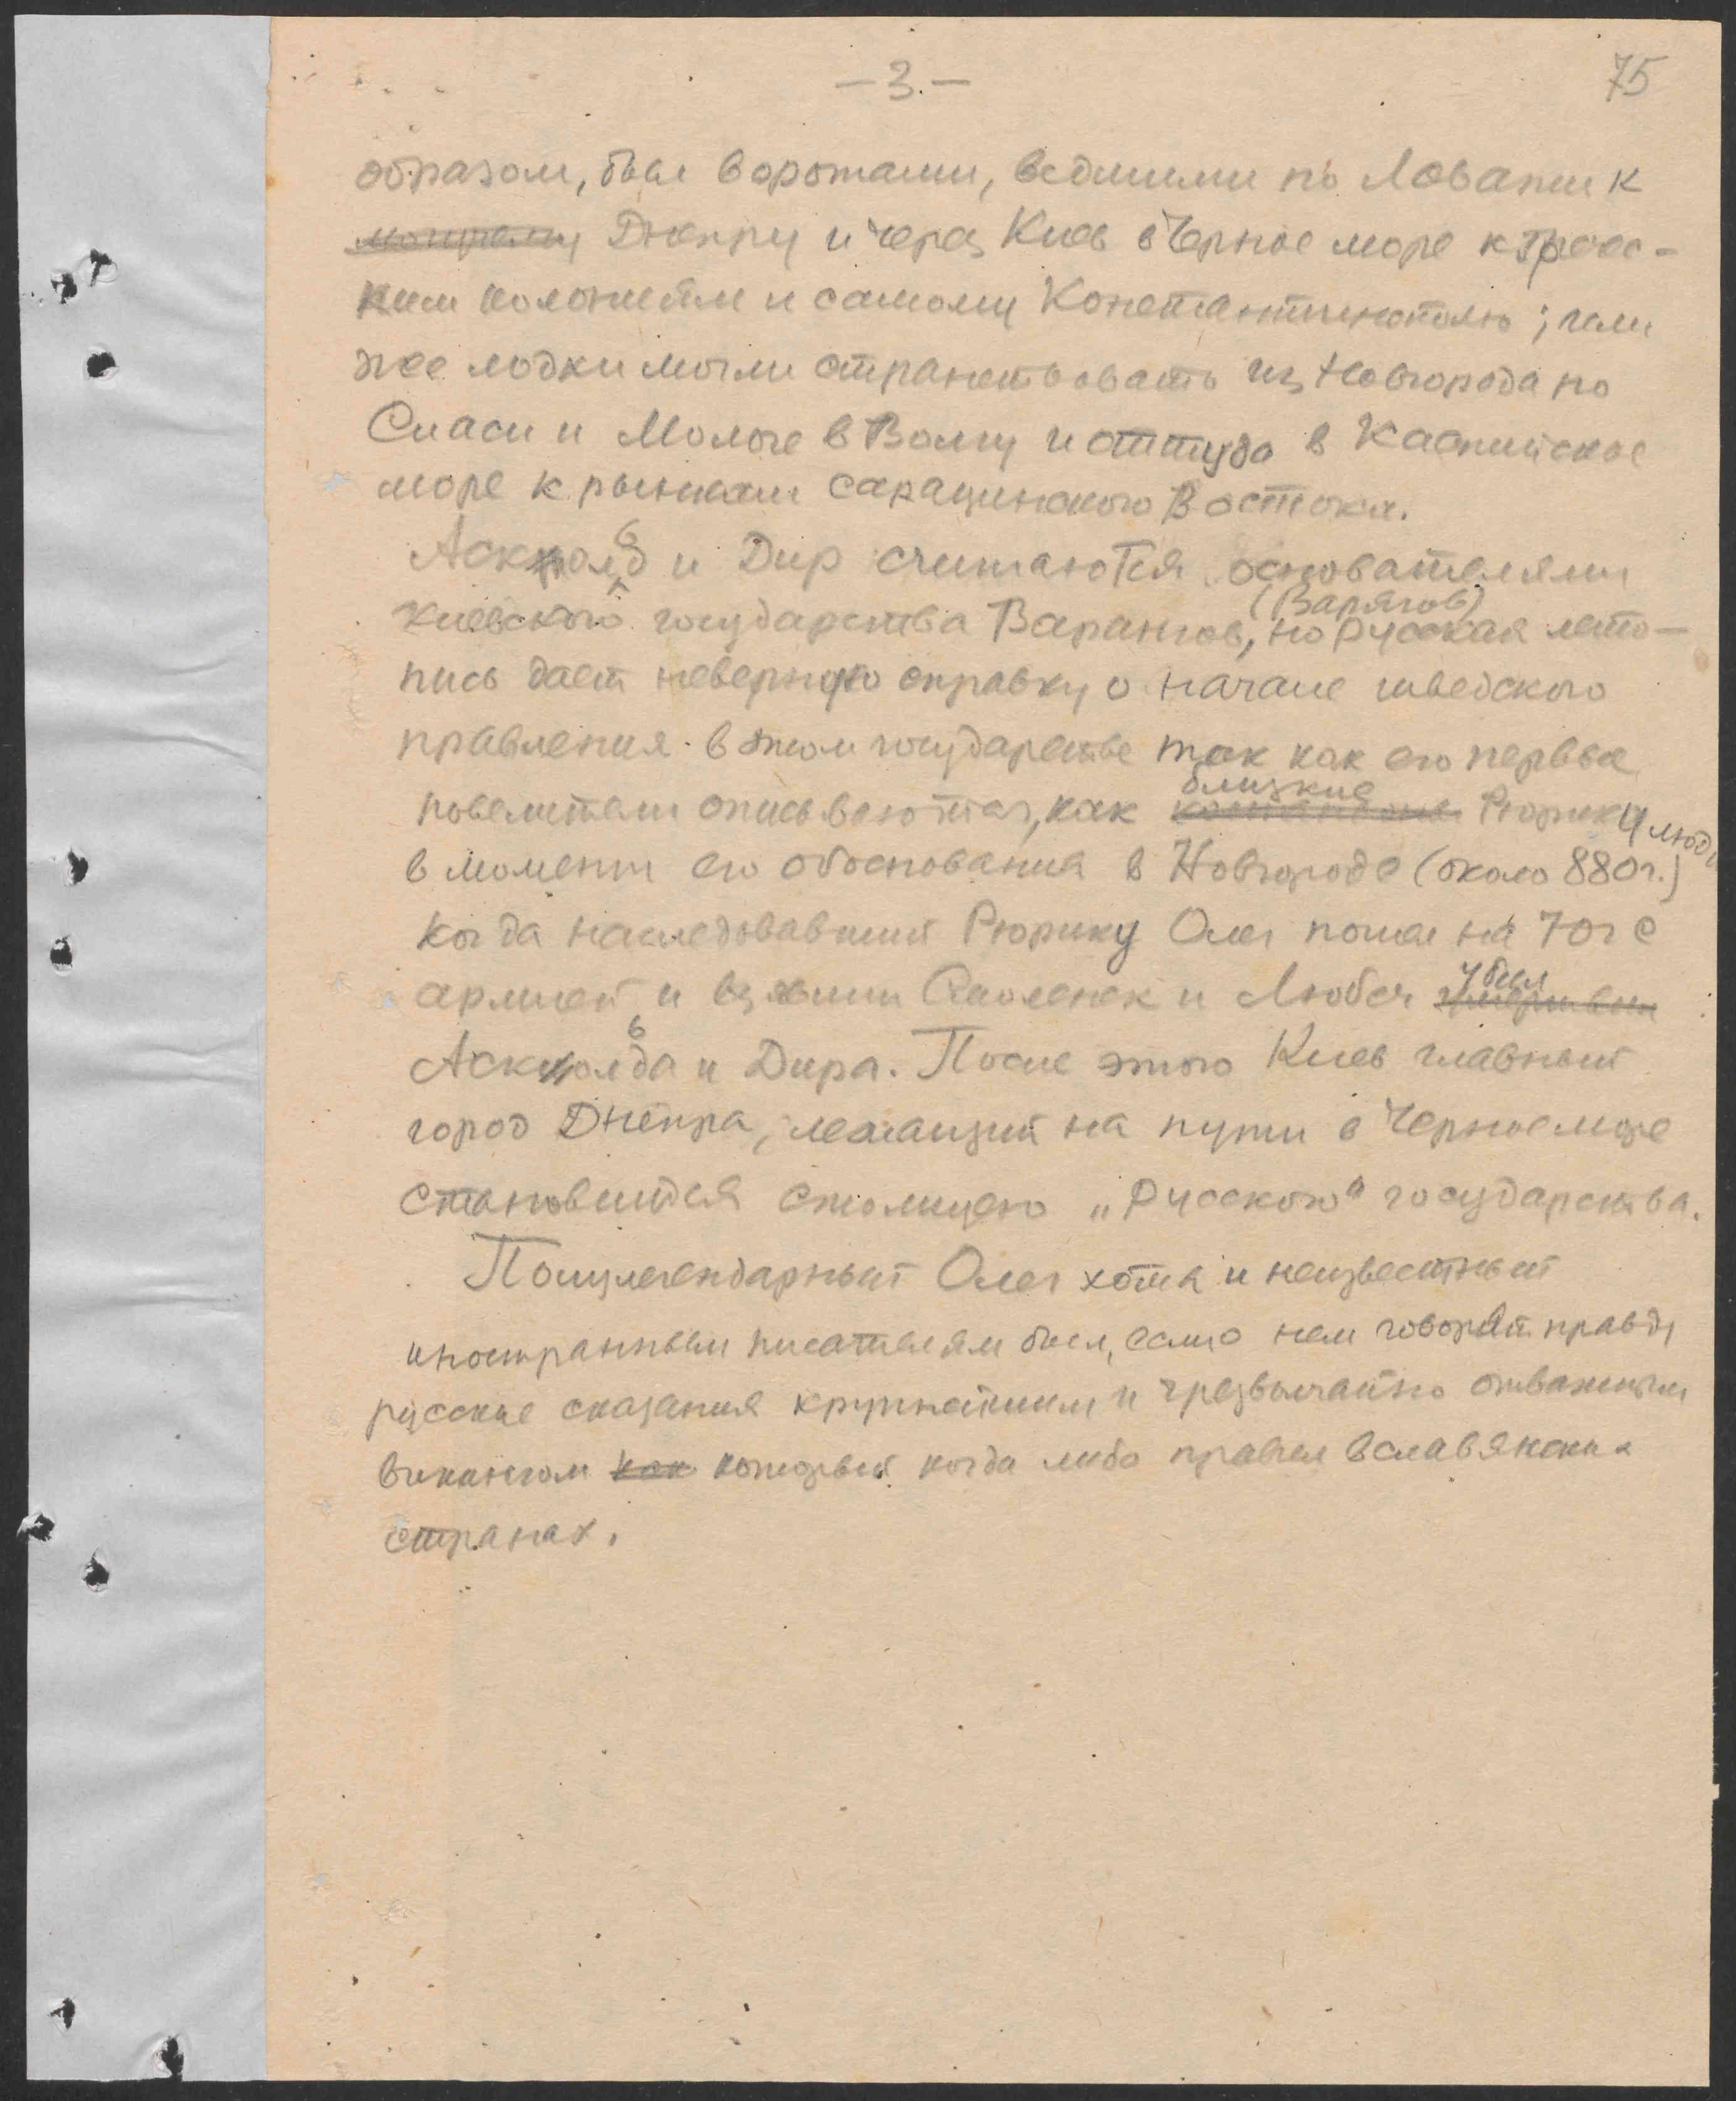 — 3. —
75
образом, был воротами, ведшими по Ловати к
Днепру и через Киев в Черное море к грече-
ким колониям и самому Константинополю; 
же лодки могли странствовать из Новгорода по
Сиаси и Мологе в Волгу и оттуда в Каспийское
море к рынкам сарацинского Востока.
Аскольд и Дир считаются основателями
(Варягов)
Киевского государства Варангов, но русская лето-
пись дает неверную справку о начале шведского
правления в этом государстве так как его первые
близкие
повелители описываются, как Рюрику люди
в момент его обоснования в Новгороде (около 880 г.)
когда наследовавший Рюрику Олег пошел на юг с
убил
армией и взявши Смоленск и Любеч
Аскольда и Дира. После этого Киев главный
город Днепра, лежащий на пути в Черное море
становится столицею „Русского" государства.
Полулегендарный Олег хотя и неизвестный
иностранным писателям был, если о нем говорят правду
русские сказания крупнейшим и чрезвычайно отважным
викингом как который когда либо правил в славянских
странах.